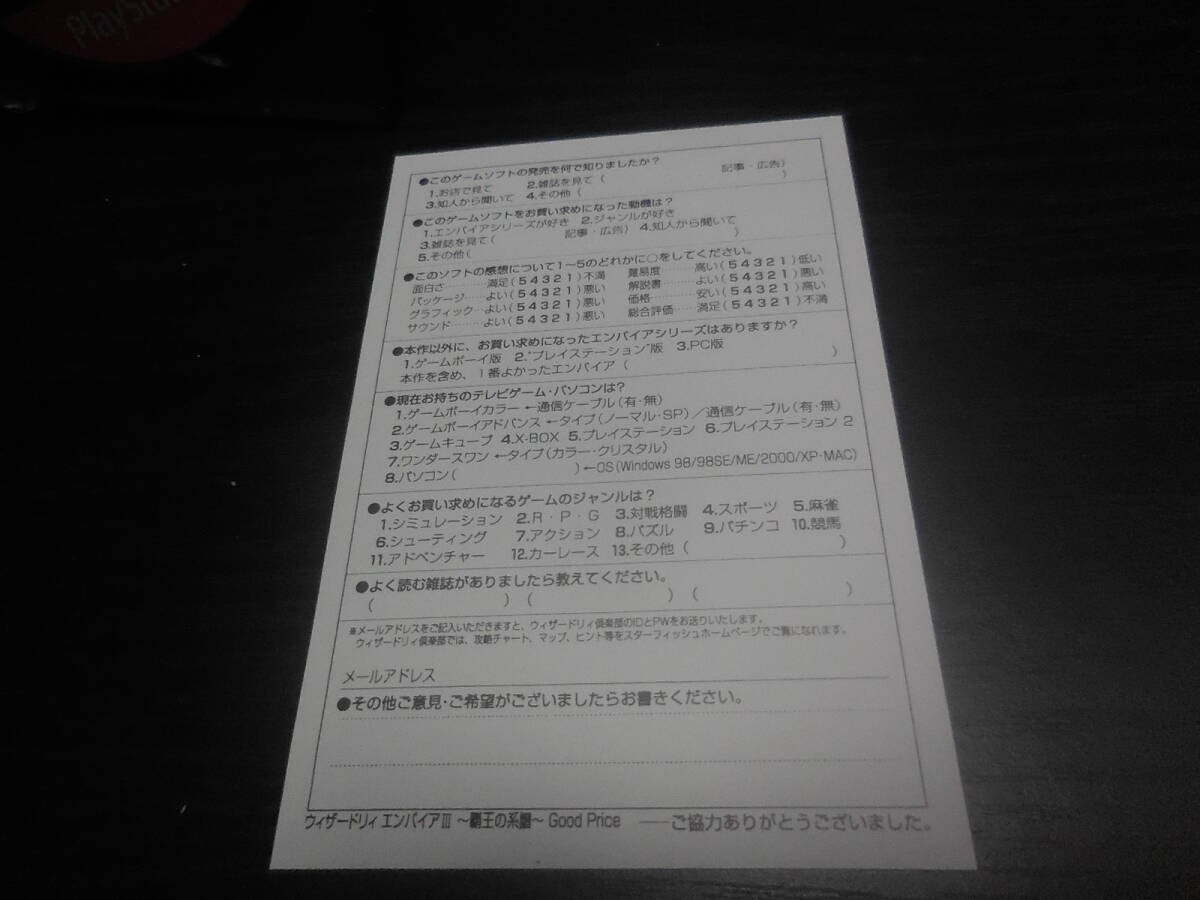 PlayStat
●このゲームソフトの発売を何で知りましたか？
1.お店で見て　2.雑誌を見て（　記事・広告）
3.知人から聞いて　4.その他（　）
●このゲームソフトをお買い求めになった動機は？
1.エンパイアシリーズが好き　2.ジャンルが好き
3.雑誌を見て（　記事・広告）　4.知人から聞いて
5.その他（　）
●このソフトの感想について1〜5のどれかに○をしてください。
面白さ………満足（5 4 3 2 1）不満　難易度………高い（5 4 3 2 1）低い
パッケージ……よい（5 4 3 2 1）悪い　解説書………よい（5 4 3 2 1）悪い
グラフィック…よい（5 4 3 2 1）悪い　価格…………安い（5 4 3 2 1）高い
サウンド………よい（5 4 3 2 1）悪い　総合評価……満足（5 4 3 2 1）不満
●本作以外に、お買い求めになったエンパイアシリーズはありますか？
1.ゲームボーイ版　2."プレイステーション"版　3.PC版
本作を含め、1番よかったエンパイア（　）
●現在お持ちのテレビゲーム・パソコンは？
1.ゲームボーイカラー ←通信ケーブル（有・無）
2.ゲームボーイアドバンス ←タイプ（ノーマル・SP）／通信ケーブル（有・無）
3.ゲームキューブ　4.X-BOX　5.プレイステーション　6.プレイステーション 2
7.ワンダースワン ←タイプ（カラー・クリスタル）
8.パソコン（　）←OS（Windows 98/98SE/ME/2000/XP・MAC）
●よくお買い求めになるゲームのジャンルは？
1.シミュレーション　2.R・P・G　3.対戦格闘　4.スポーツ　5.麻雀
6.シューティング　7.アクション　8.パズル　9.パチンコ　10.競馬
11.アドベンチャー　12.カーレース　13.その他（　）
●よく読む雑誌がありましたら教えてください。
（　）（　）（　）
※メールアドレスをご記入いただきますと、ウィザードリィ倶楽部のIDとPWをお送りいたします。
ウィザードリィ倶楽部では、攻略チャート、マップ、ヒント等をスターフィッシュホームページでご覧になれます。
メールアドレス
●その他ご意見・ご希望がございましたらお書きください。
ウィザードリィ エンパイアⅢ 〜覇王の系譜〜 Good Price　――ご協力ありがとうございました。